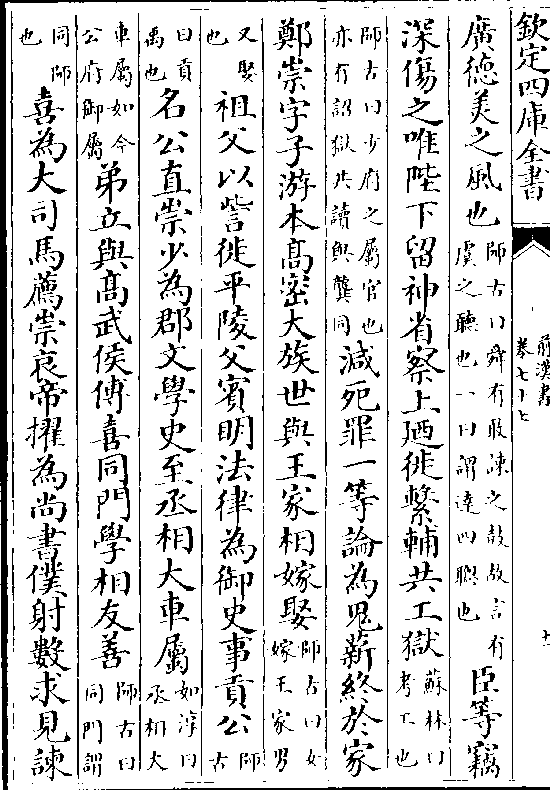 欽定四庫全書
前漢書
卷七十七
十一
廣徳美之風也師古曰舜有敢諫之鼓故言有虞之聽也一曰謂達四聰也臣等竊
深傷之唯陛下留神省察上廼徙繫輔共工獄蘇林曰考工也
師古曰少府之屬官也亦有詔獄共讀與龔同減死罪一等論為鬼薪終於家
鄭崇字子游本髙密大族世與王家相嫁娶師古曰女嫁王家男
又娶也祖父以訾徙平陵父賓明法律為御史事貢公師古
曰貢禹也名公直崇少為郡文學史至丞相大車屬如淳曰丞相大
車屬如今公府御屬弟立與髙武侯傅喜同門學相友善師古曰同門謂
同師也喜為大司馬薦崇哀帝擢為尚書僕射數求見諫